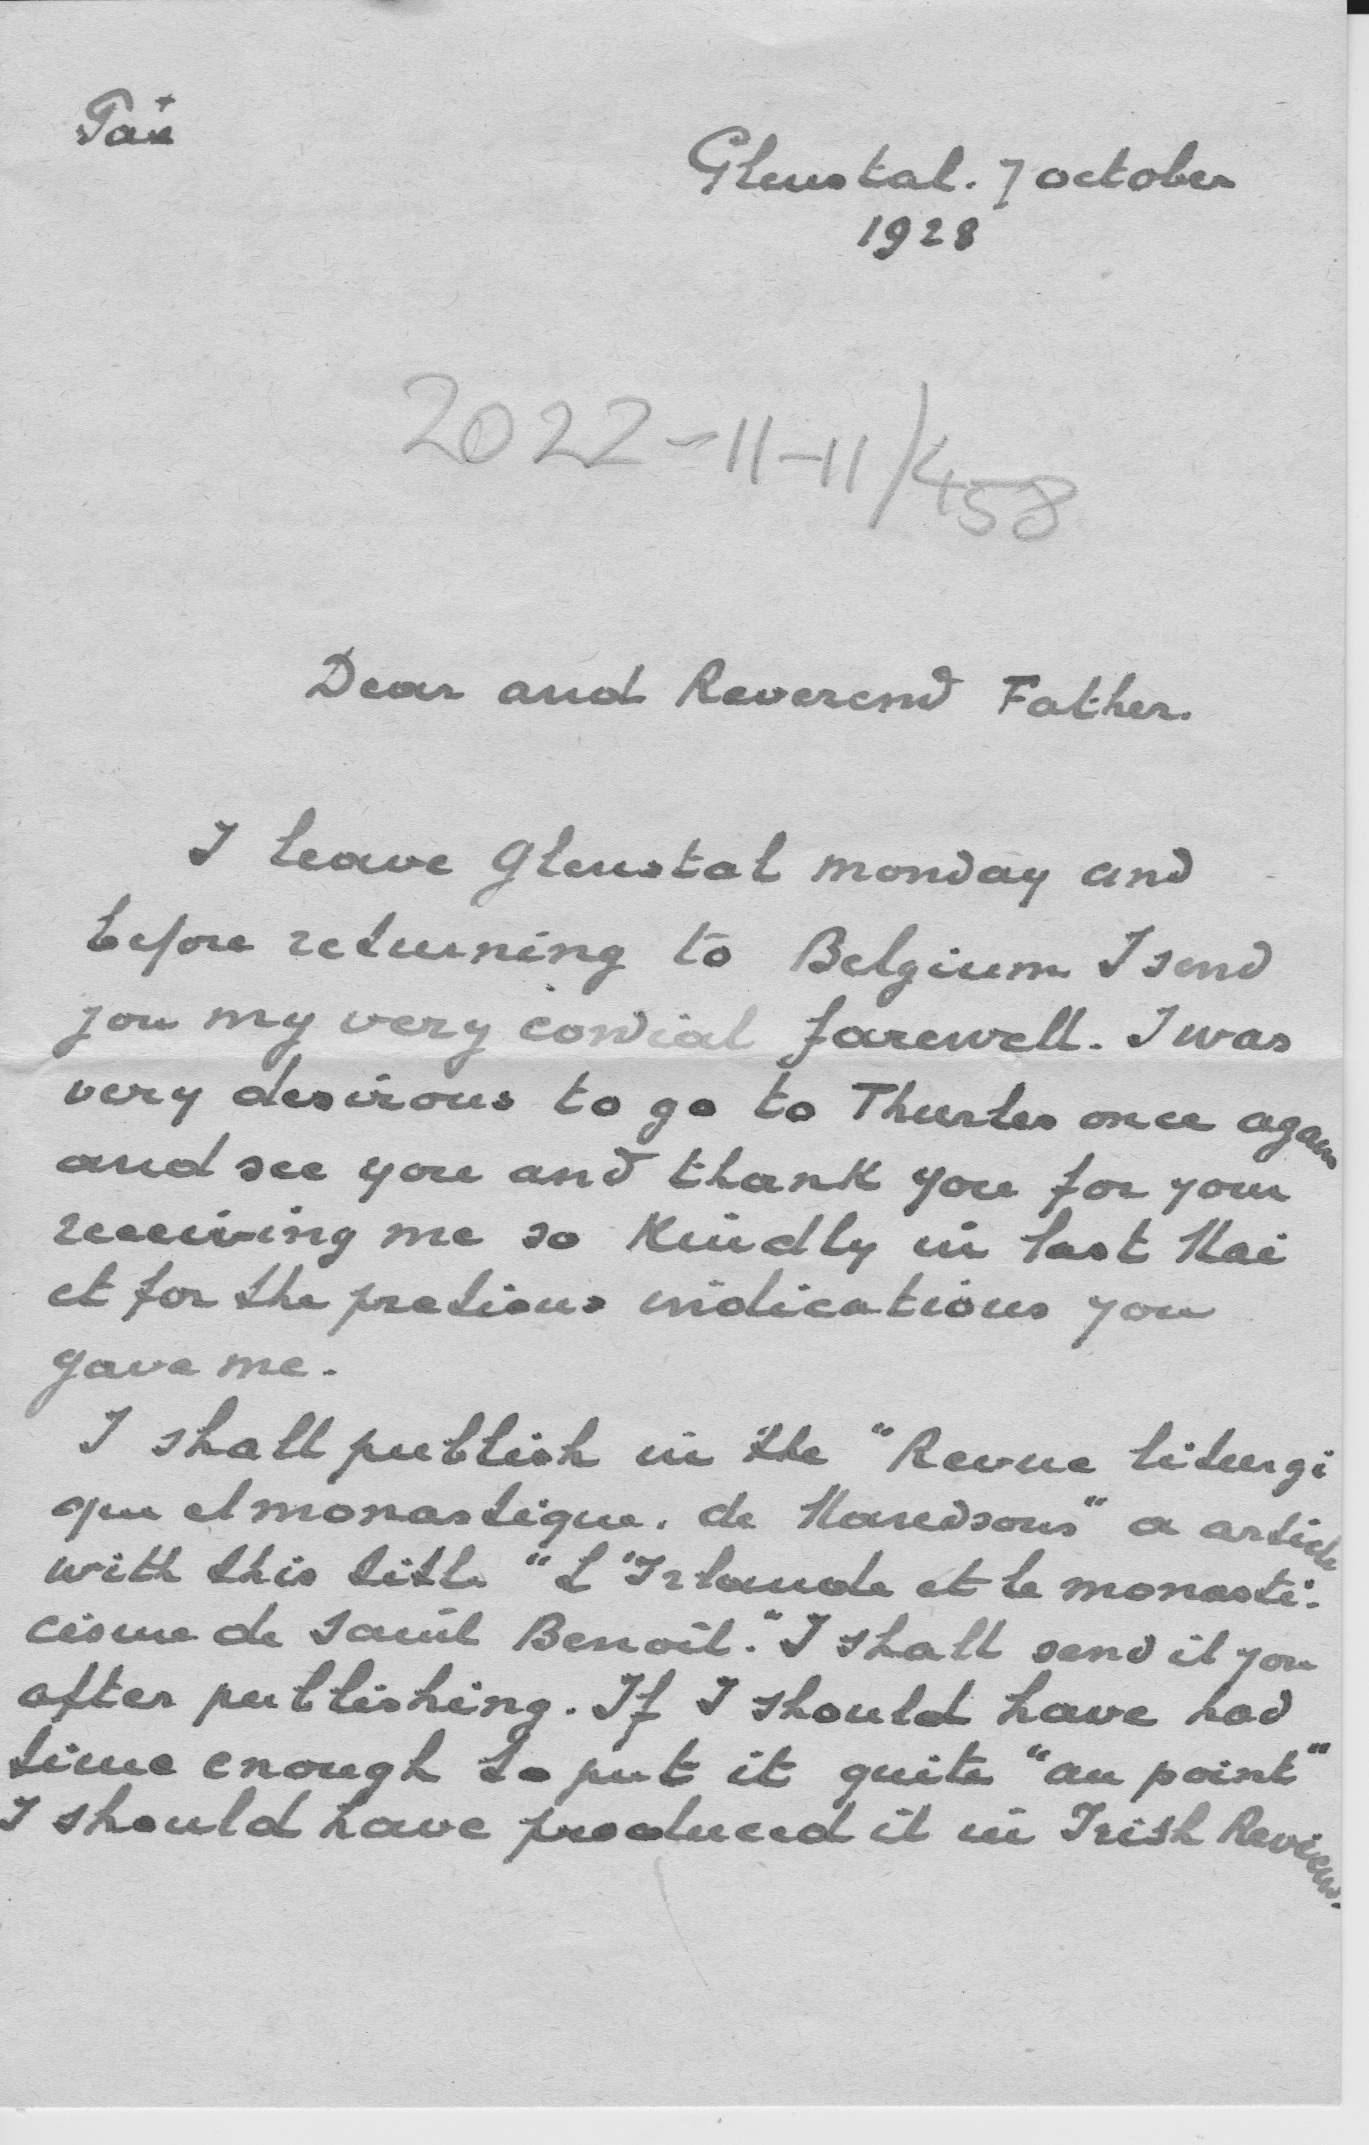 Pax
Glenstal. 7 october
1928
2022-11-11/458
Dear and Reverend Father.
I leave Glenstal monday and
before returning to Belgium I send
you my very cordial farewell. I was
very desirous to go to Thurles once again
and see you and thank you for your
receiving me so kindly in last Mai
et for the pretious indications you
gave me.
I shall publish in the "Revue liturgi
que et monastique. de Maredsous" a article
with this title "L'Irlande et le monasti-
cisme de saint Benoit." I shall send it you
after publishing. If I should have had
time enough to put it quite "au point"
I should have produced it in Irish Review.